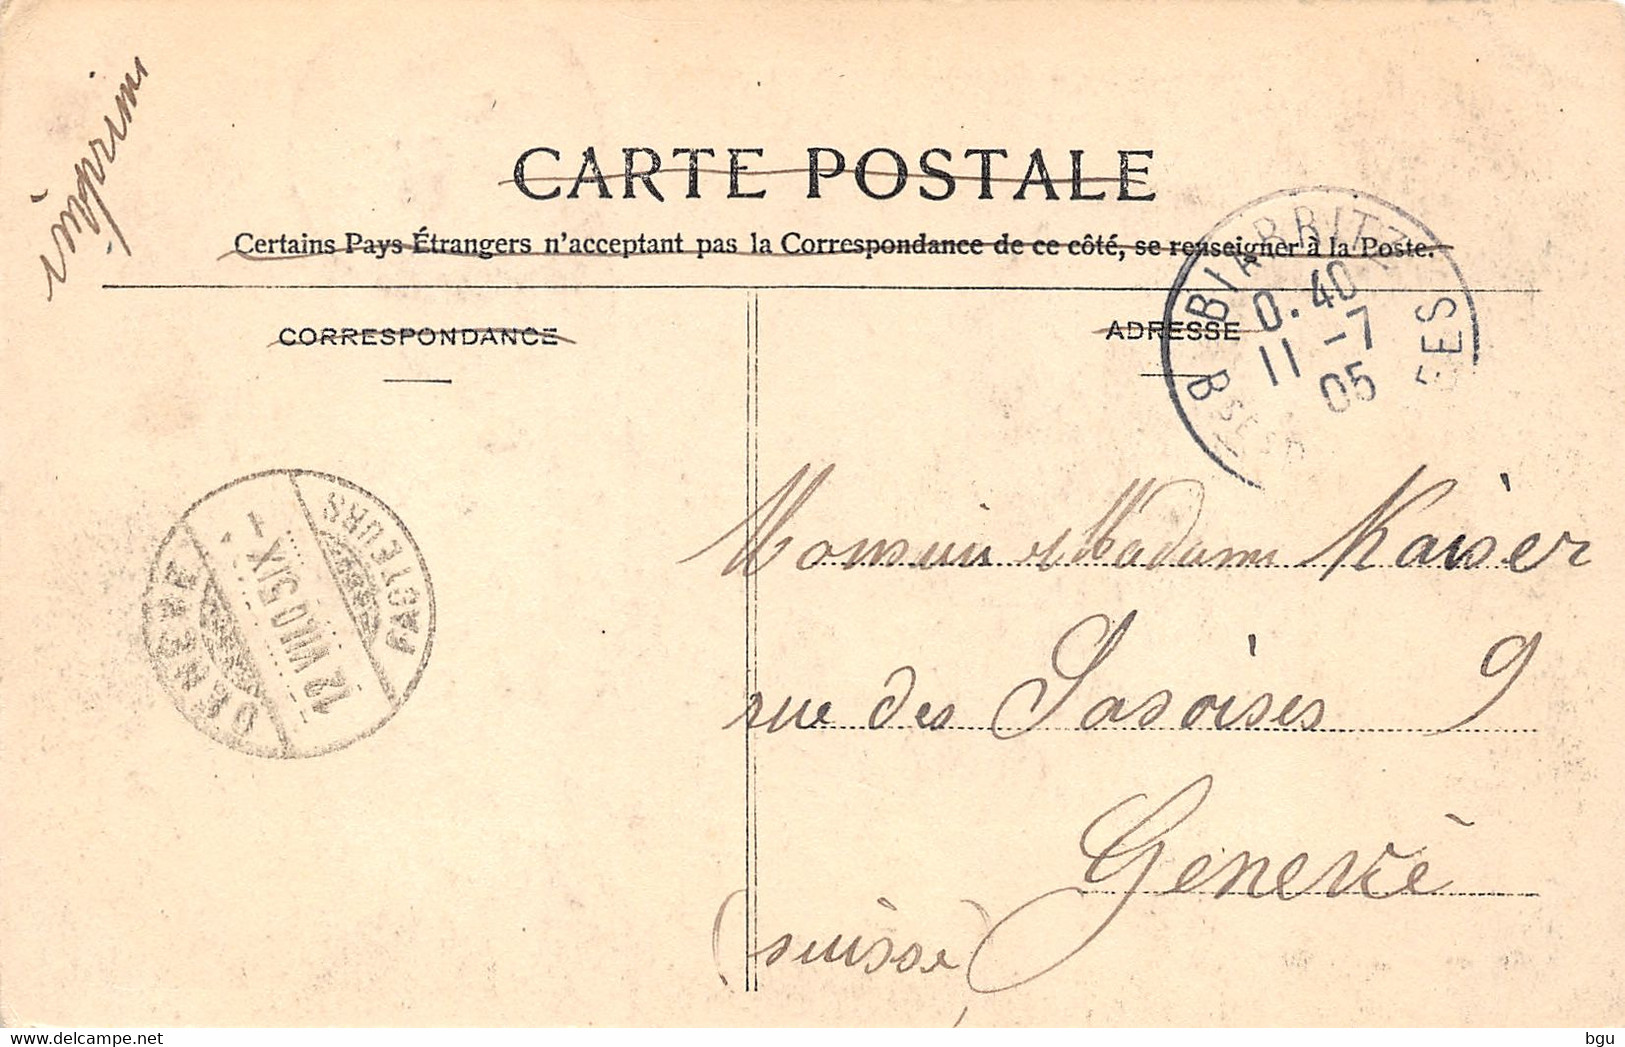 imprimé
CARTE POSTALE
Certains Pays Étrangers n'acceptant pas la Correspondance de ce côté, se renseigner à la Poste.
CORRESPONDANCE
ADRESSE
BIARRITZ
0.40
11 -7
05
GENÈVE
12.VII.05.IX
FACTEURS
Monsieur et Madame Kaiser
rue des Savoises 9
Genève
(suisse)
www.delcampe.net
bgu